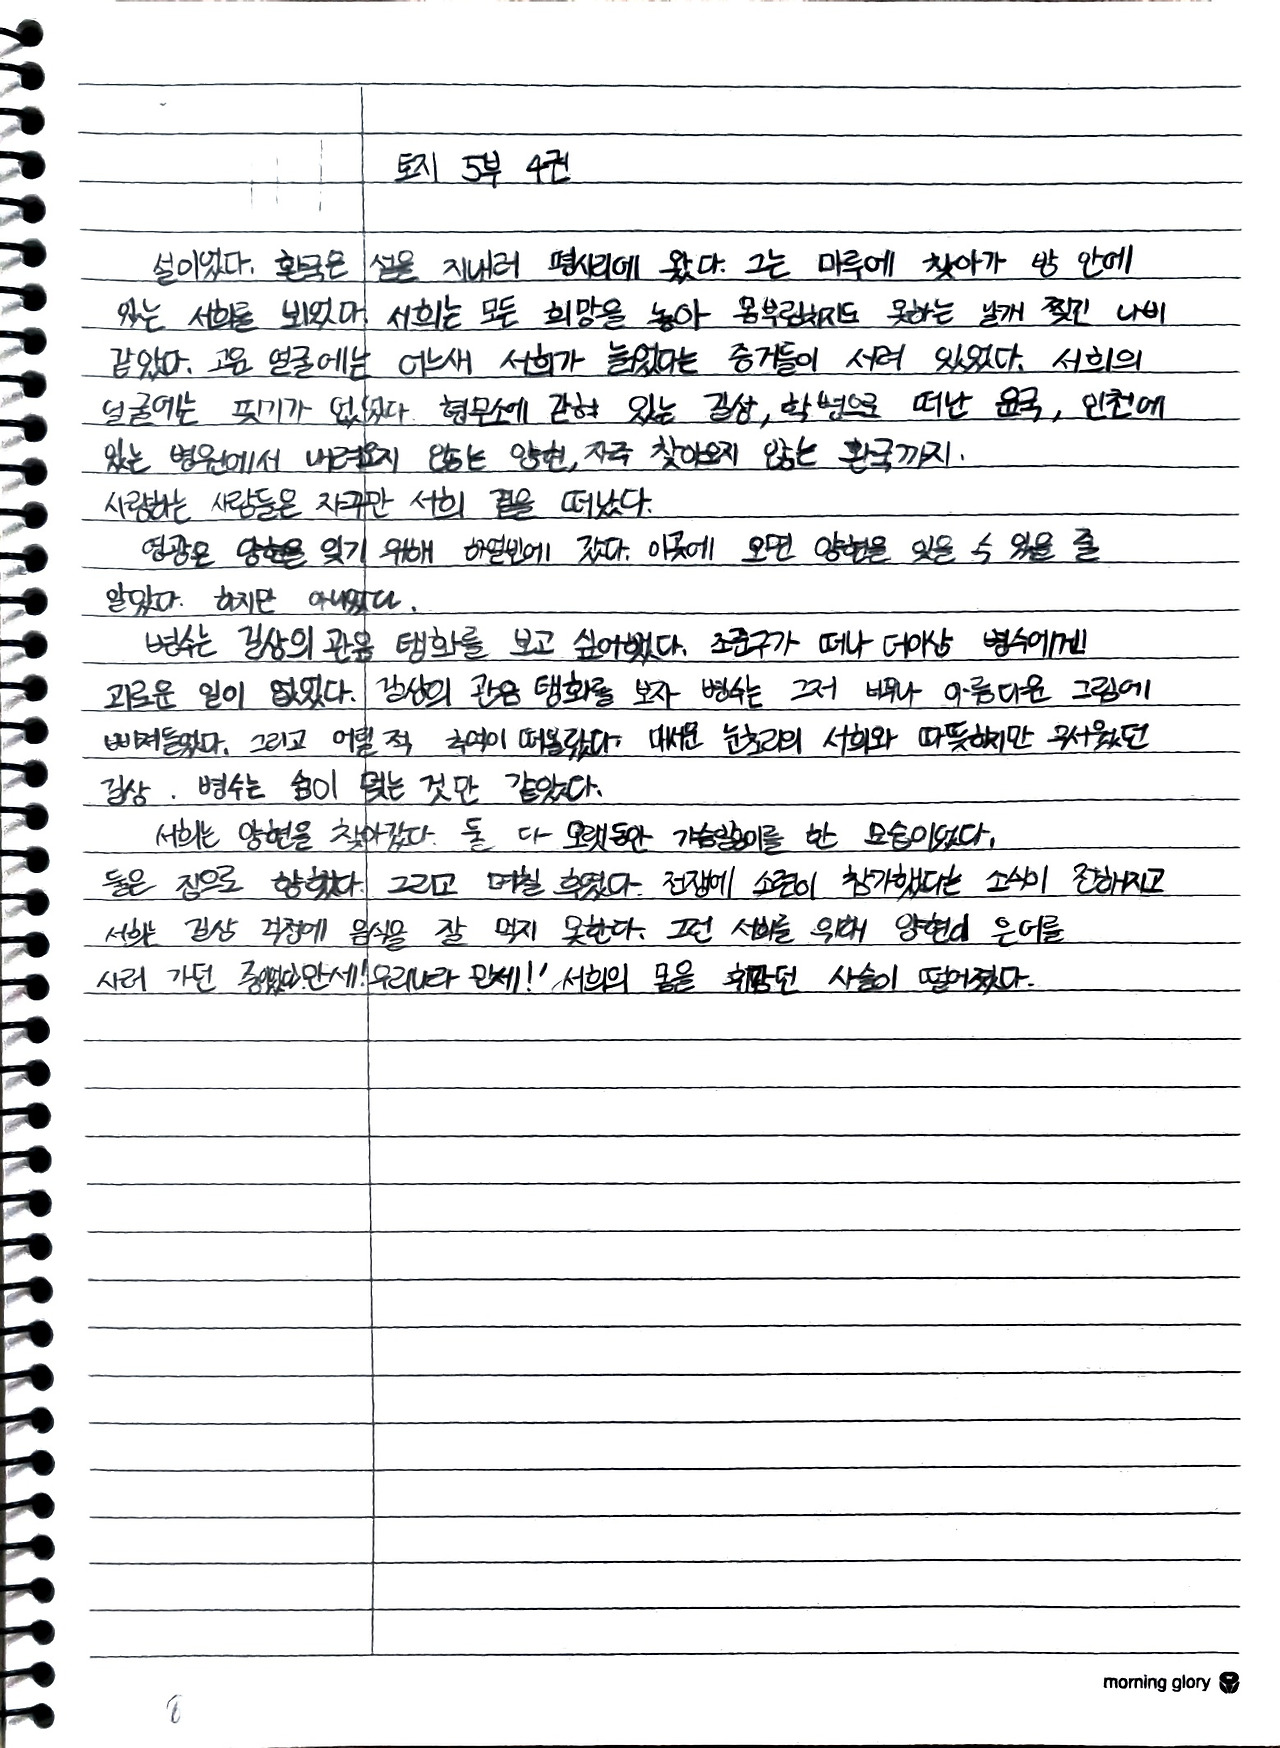 토지 5부 4권
설이었다. 환국은 설을 지내러 평사리에 왔다. 그는 마루에 찾아가 방 안에
있는 서희를 뵈었다. 서희는 모든 희망을 놓아 몸부림치지도 못하는 날개 찢긴 나비
같았다. 고운 얼굴에는 어느새 서희가 늙었다는 증거들이 서려 있었다. 서희의
얼굴에는 핏기가 없었다. 형무소에 갇혀 있는 길상, 학병으로 떠난 윤국, 인천에
있는 병원에서 내려오지 않는 양현, 자주 찾아오지 않는 환국까지.
사랑하는 사람들은 자꾸만 서희 곁을 떠났다.
영광은 양현을 잊기 위해 하얼빈에 갔다. 이곳에 오면 양현을 잊을 수 있을 줄
알았다. 하지만 아니었다.
병수는 길상의 관음 탱화를 보고 싶어했다. 조준구가 떠나 더이상 병수에겐
괴로운 일이 없었다. 길상의 관음 탱화를 보자 병수는 그저 너무나 아름다운 그림에
빠져들었다. 그리고 어릴 적 추억이 떠올랐다. 매서운 눈초리의 서희와 따뜻하지만 무서웠던
길상. 병수는 숨이 멎는 것만 같았다.
서희는 양현을 찾아갔다. 둘 다 오랫동안 가슴앓이를 한 모습이었다.
둘은 집으로 향했다. 그리고 며칠 후였다. 전쟁에 소련이 참가했다는 소식이 전해지고
서희는 길상 걱정에 음식을 잘 먹지 못한다. 그런 서희를 위해 양현이 은어를
사러 가던 중이었다. 만세! 우리나라 만세!' 서희의 몸을 휘감던 사슬이 떨어졌다.
morning glory